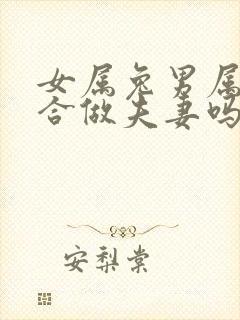 女属兔男属
合做夫妻吗
安梨棠